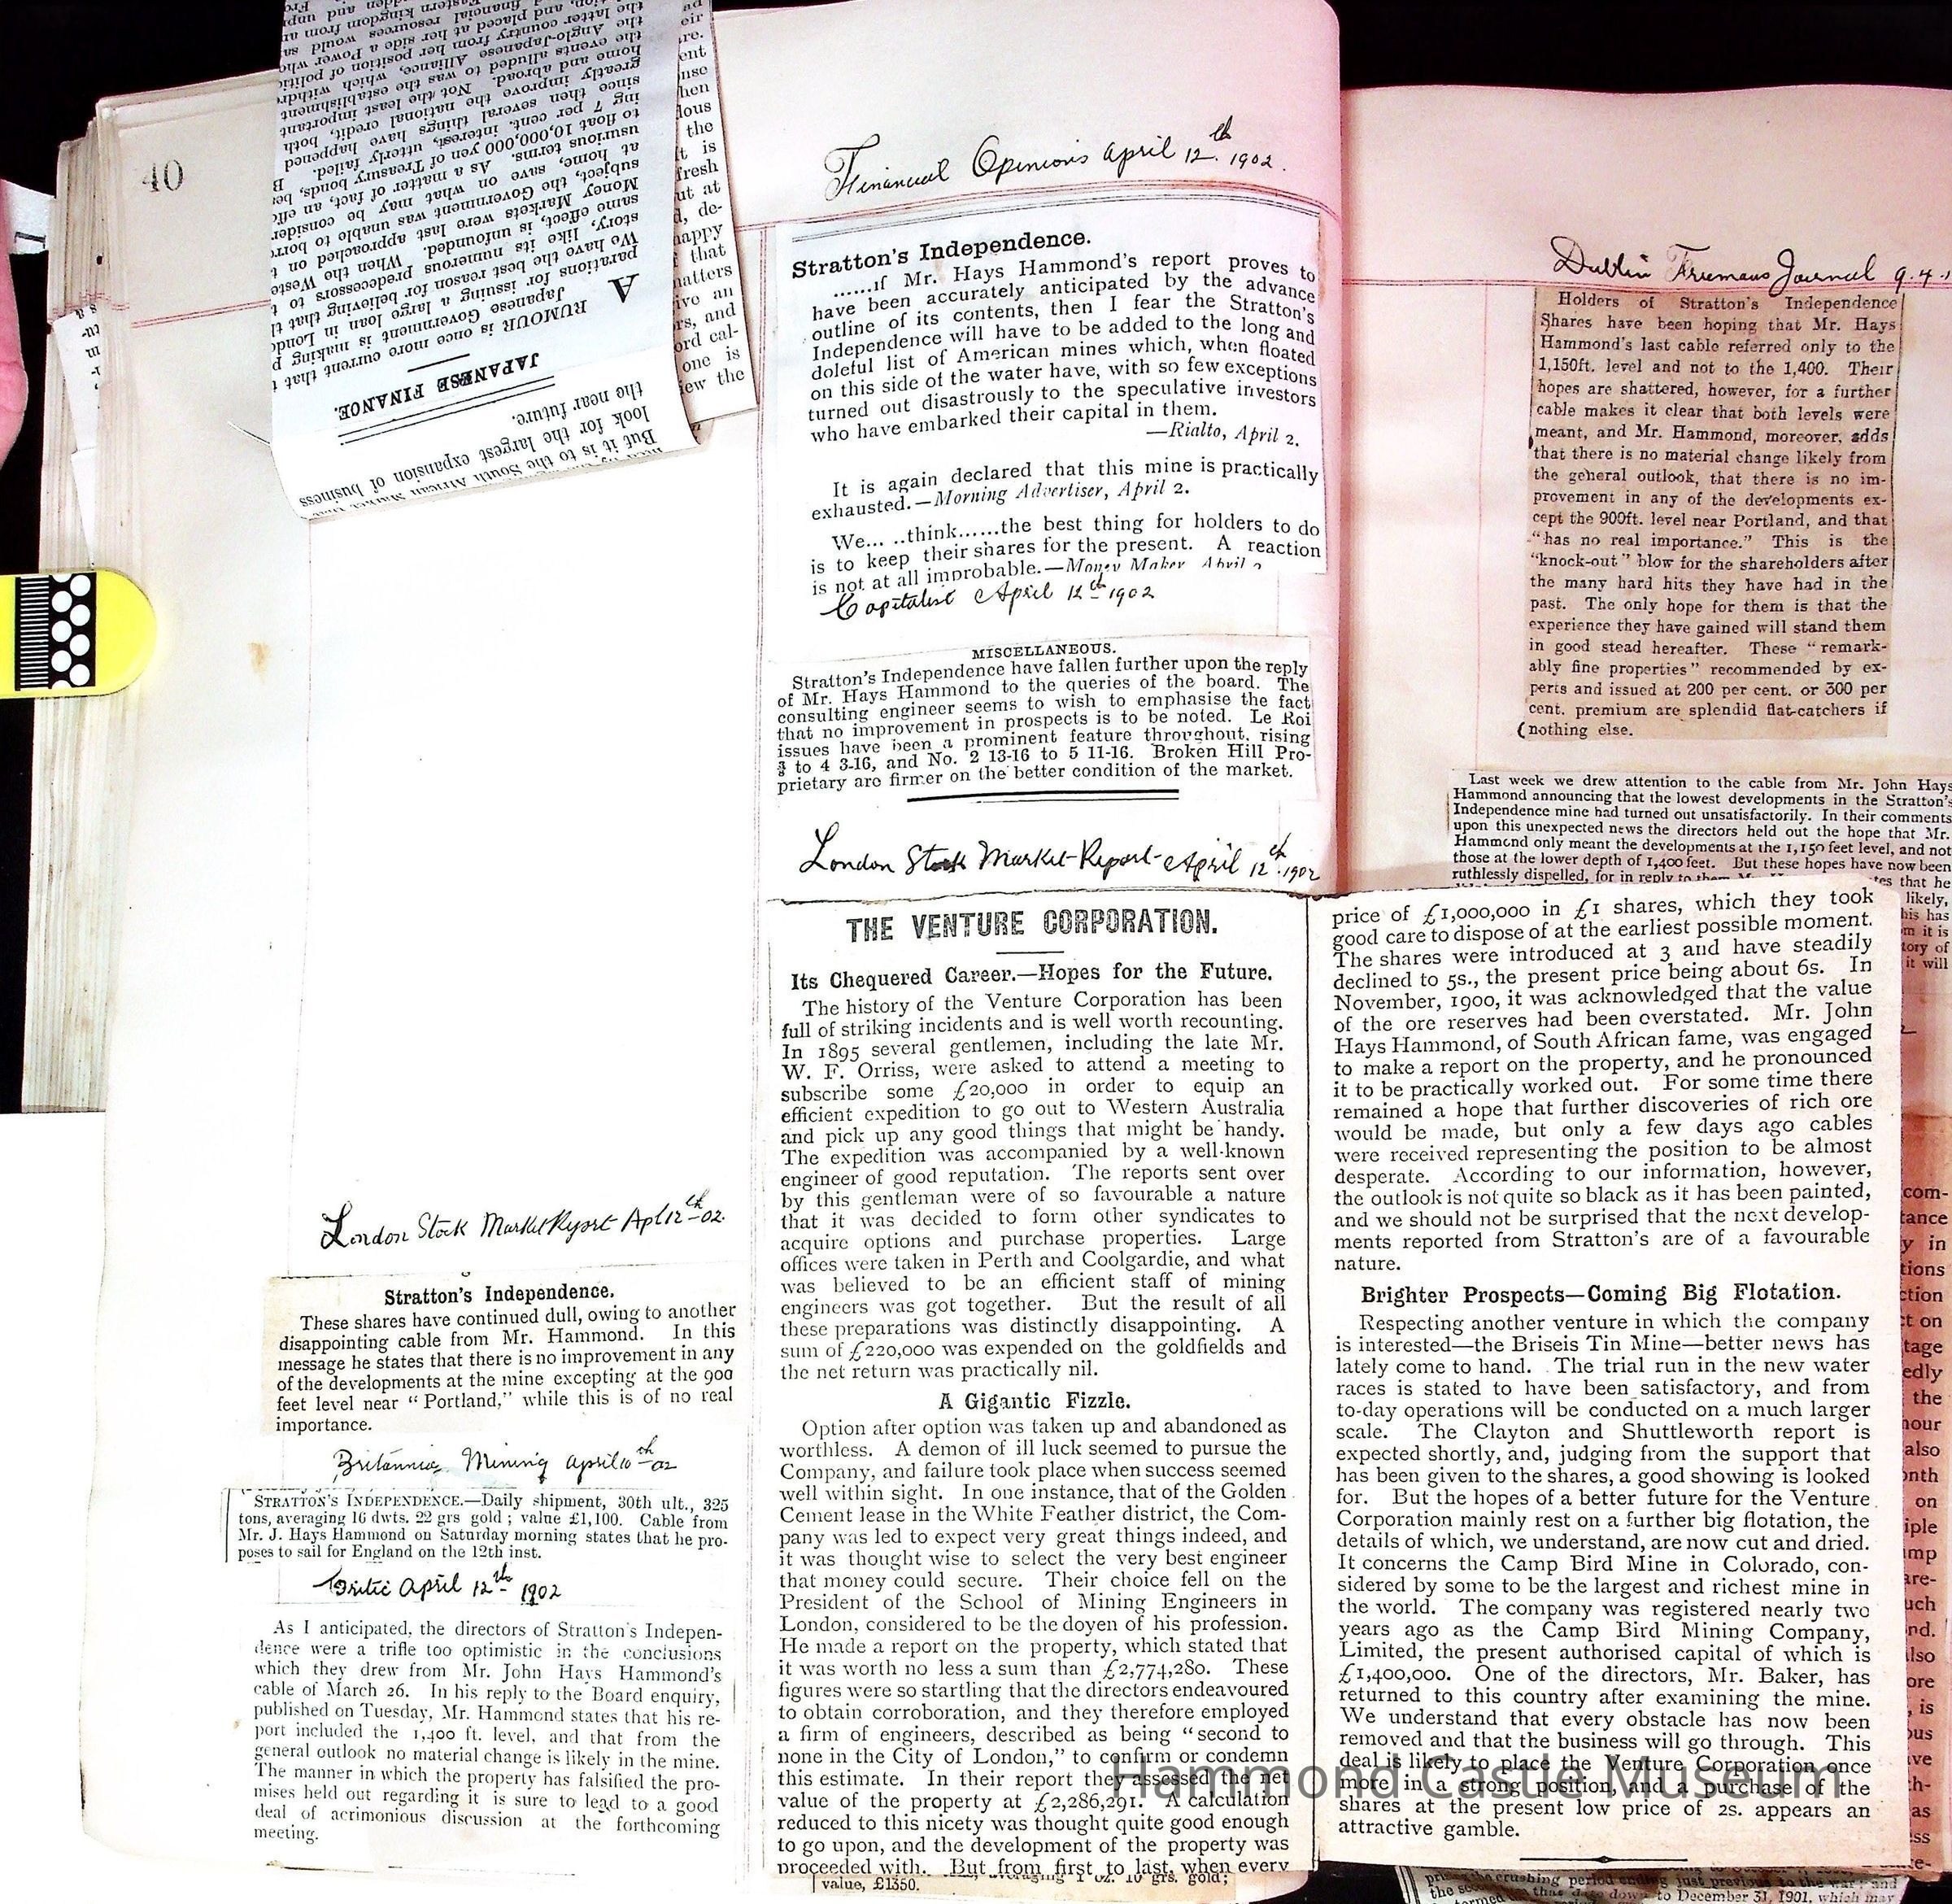 40
JAPANESE FINANCE.
A RUMOUR is once more current that
Japanese Government is making
parations for issuing a large loan in
We have the best reason for believing that
story, like its numerous predecessors to
same effect, is unfounded. When the
Money Markets were last approached on
subject, the Government was unable to
at home, save on what may be
usurious terms. As a matter of fact, an
to float 10,000,000 yen of Treasury bonds,
ing 7 per cent. interest, utterly failed.
since then several things have happened
greatly improve the national credit, both
home and abroad. Not the least important
the events alluded to was the establishment
the Anglo-Japanese Alliance, which
the latter country from her position of
and placed at her side a Power
financial resources would
kingdom from
But it is to the South African Market that
look for the largest expansion of business
the near future.
Financial Opinions April 12th. 1902.
Stratton's Independence.
......if Mr. Hays Hammond's report proves to
have been accurately anticipated by the advance
outline of its contents, then I fear the Stratton's
Independence will have to be added to the long and
doleful list of American mines which, when floated
on this side of the water have, with so few exceptions
turned out disastrously to the speculative investors
who have embarked their capital in them.
—Rialto, April 2.
It is again declared that this mine is practically
exhausted.—Morning Advertiser, April 2.
We... ..think......the best thing for holders to do
is to keep their shares for the present. A reaction
is not at all improbable.—Money Maker, April
Capitalist April 12th 1902
MISCELLANEOUS.
Stratton's Independence have fallen further upon the reply
of Mr. Hays Hammond to the queries of the board. The
consulting engineer seems to wish to emphasise the fact
that no improvement in prospects is to be noted. Le Roi
issues have been a prominent feature throughout, rising
to 4 3-16, and No. 2 13-16 to 5 11-16. Broken Hill Pro-
prietary are firmer on the better condition of the market.
London Stock Market Report - April 12th. 1902
THE VENTURE CORPORATION.
Its Chequered Career.—Hopes for the Future.
The history of the Venture Corporation has been
full of striking incidents and is well worth recounting.
In 1895 several gentlemen, including the late Mr.
W. F. Orriss, were asked to attend a meeting to
subscribe some £20,000 in order to equip an
efficient expedition to go out to Western Australia
and pick up any good things that might be handy.
The expedition was accompanied by a well-known
engineer of good reputation. The reports sent over
by this gentleman were of so favourable a nature
that it was decided to form other syndicates to
acquire options and purchase properties. Large
offices were taken in Perth and Coolgardie, and what
was believed to be an efficient staff of mining
engineers was got together. But the result of all
these preparations was distinctly disappointing. A
sum of £220,000 was expended on the goldfields and
the net return was practically nil.
A Gigantic Fizzle.
Option after option was taken up and abandoned as
worthless. A demon of ill luck seemed to pursue the
Company, and failure took place when success seemed
well within sight. In one instance, that of the Golden
Cement lease in the White Feather district, the Com-
pany was led to expect very great things indeed, and
it was thought wise to select the very best engineer
that money could secure. Their choice fell on the
President of the School of Mining Engineers in
London, considered to be the doyen of his profession.
He made a report on the property, which stated that
it was worth no less a sum than £2,774,280. These
figures were so startling that the directors endeavoured
to obtain corroboration, and they therefore employed
a firm of engineers, described as being "second to
none in the City of London," to confirm or condemn
this estimate. In their report they assessed the net
value of the property at £2,286,291. A calculation
reduced to this nicety was thought quite good enough
to go upon, and the development of the property was
proceeded with. But from first to last, when every
value, £1350.
price of £1,000,000 in £1 shares, which they took
good care to dispose of at the earliest possible moment.
The shares were introduced at 3 and have steadily
declined to 5s., the present price being about 6s. In
November, 1900, it was acknowledged that the value
of the ore reserves had been overstated. Mr. John
Hays Hammond, of South African fame, was engaged
to make a report on the property, and he pronounced
it to be practically worked out. For some time there
remained a hope that further discoveries of rich ore
would be made, but only a few days ago cables
were received representing the position to be almost
desperate. According to our information, however,
the outlook is not quite so black as it has been painted,
and we should not be surprised that the next develop-
ments reported from Stratton's are of a favourable
nature.
Brighter Prospects—Coming Big Flotation.
Respecting another venture in which the company
is interested—the Briseis Tin Mine—better news has
lately come to hand. The trial run in the new water
races is stated to have been satisfactory, and from
to-day operations will be conducted on a much larger
scale. The Clayton and Shuttleworth report is
expected shortly, and, judging from the support that
has been given to the shares, a good showing is looked
for. But the hopes of a better future for the Venture
Corporation mainly rest on a further big flotation, the
details of which, we understand, are now cut and dried.
It concerns the Camp Bird Mine in Colorado, con-
sidered by some to be the largest and richest mine in
the world. The company was registered nearly two
years ago as the Camp Bird Mining Company,
Limited, the present authorised capital of which is
£1,400,000. One of the directors, Mr. Baker, has
returned to this country after examining the mine.
We understand that every obstacle has now been
removed and that the business will go through. This
deal is likely to place the Venture Corporation once
more in a strong position, and a purchase of the
shares at the present low price of 2s. appears an
attractive gamble.
London Stock Market Report Apl 12th 02.
Stratton's Independence.
These shares have continued dull, owing to another
disappointing cable from Mr. Hammond. In this
message he states that there is no improvement in any
of the developments at the mine excepting at the 900
feet level near "Portland," while this is of no real
importance.
Britannia Mining April 10th 02
STRATTON'S INDEPENDENCE.—Daily shipment, 30th ult., 325
tons, averaging 16 dwts. 22 grs gold; value £1,100. Cable from
Mr. J. Hays Hammond on Saturday morning states that he pro-
poses to sail for England on the 12th inst.
Critic April 12th 1902
As I anticipated, the directors of Stratton's Indepen-
dence were a trifle too optimistic in the conclusions
which they drew from Mr. John Hays Hammond's
cable of March 26. In his reply to the Board enquiry,
published on Tuesday, Mr. Hammond states that his re-
port included the 1,400 ft. level, and that from the
general outlook no material change is likely in the mine.
The manner in which the property has falsified the pro-
mises held out regarding it is sure to lead to a good
deal of acrimonious discussion at the forthcoming
meeting.
Dublin Freemans Journal 9.4.
Holders of Stratton's Independence
Shares have been hoping that Mr. Hays
Hammond's last cable referred only to the
1,150ft. level and not to the 1,400. Their
hopes are shattered, however, for a further
cable makes it clear that both levels were
meant, and Mr. Hammond, moreover, adds
that there is no material change likely from
the general outlook, that there is no im-
provement in any of the developments ex-
cept the 900ft. level near Portland, and that
"has no real importance." This is the
"knock-out" blow for the shareholders after
the many hard hits they have had in the
past. The only hope for them is that the
experience they have gained will stand them
in good stead hereafter. These "remark-
ably fine properties" recommended by ex-
perts and issued at 200 per cent. or 300 per
cent. premium are splendid flat-catchers if
nothing else.
Last week we drew attention to the cable from Mr. John Hays
Hammond announcing that the lowest developments in the Stratton's
Independence mine had turned out unsatisfactorily. In their comments
upon this unexpected news the directors held out the hope that Mr.
Hammond only meant the developments at the 1,150 feet level, and not
those at the lower depth of 1,400 feet. But these hopes have now been
ruthlessly dispelled, for in reply to them
to December 31, 1901, which may
Hammond Castle Museum